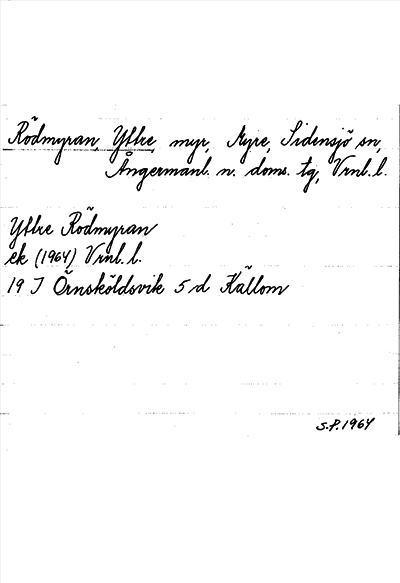 Rödmyran, Yttre, myr, Myre, Sidensjö sn,
Ångermanl. n. doms. tg, Vrnl. l.
Yttre Rödmyran
ek (1964) Vrnl. l.
19 J Örnsköldsvik 5 d Källom
S.P. 1964